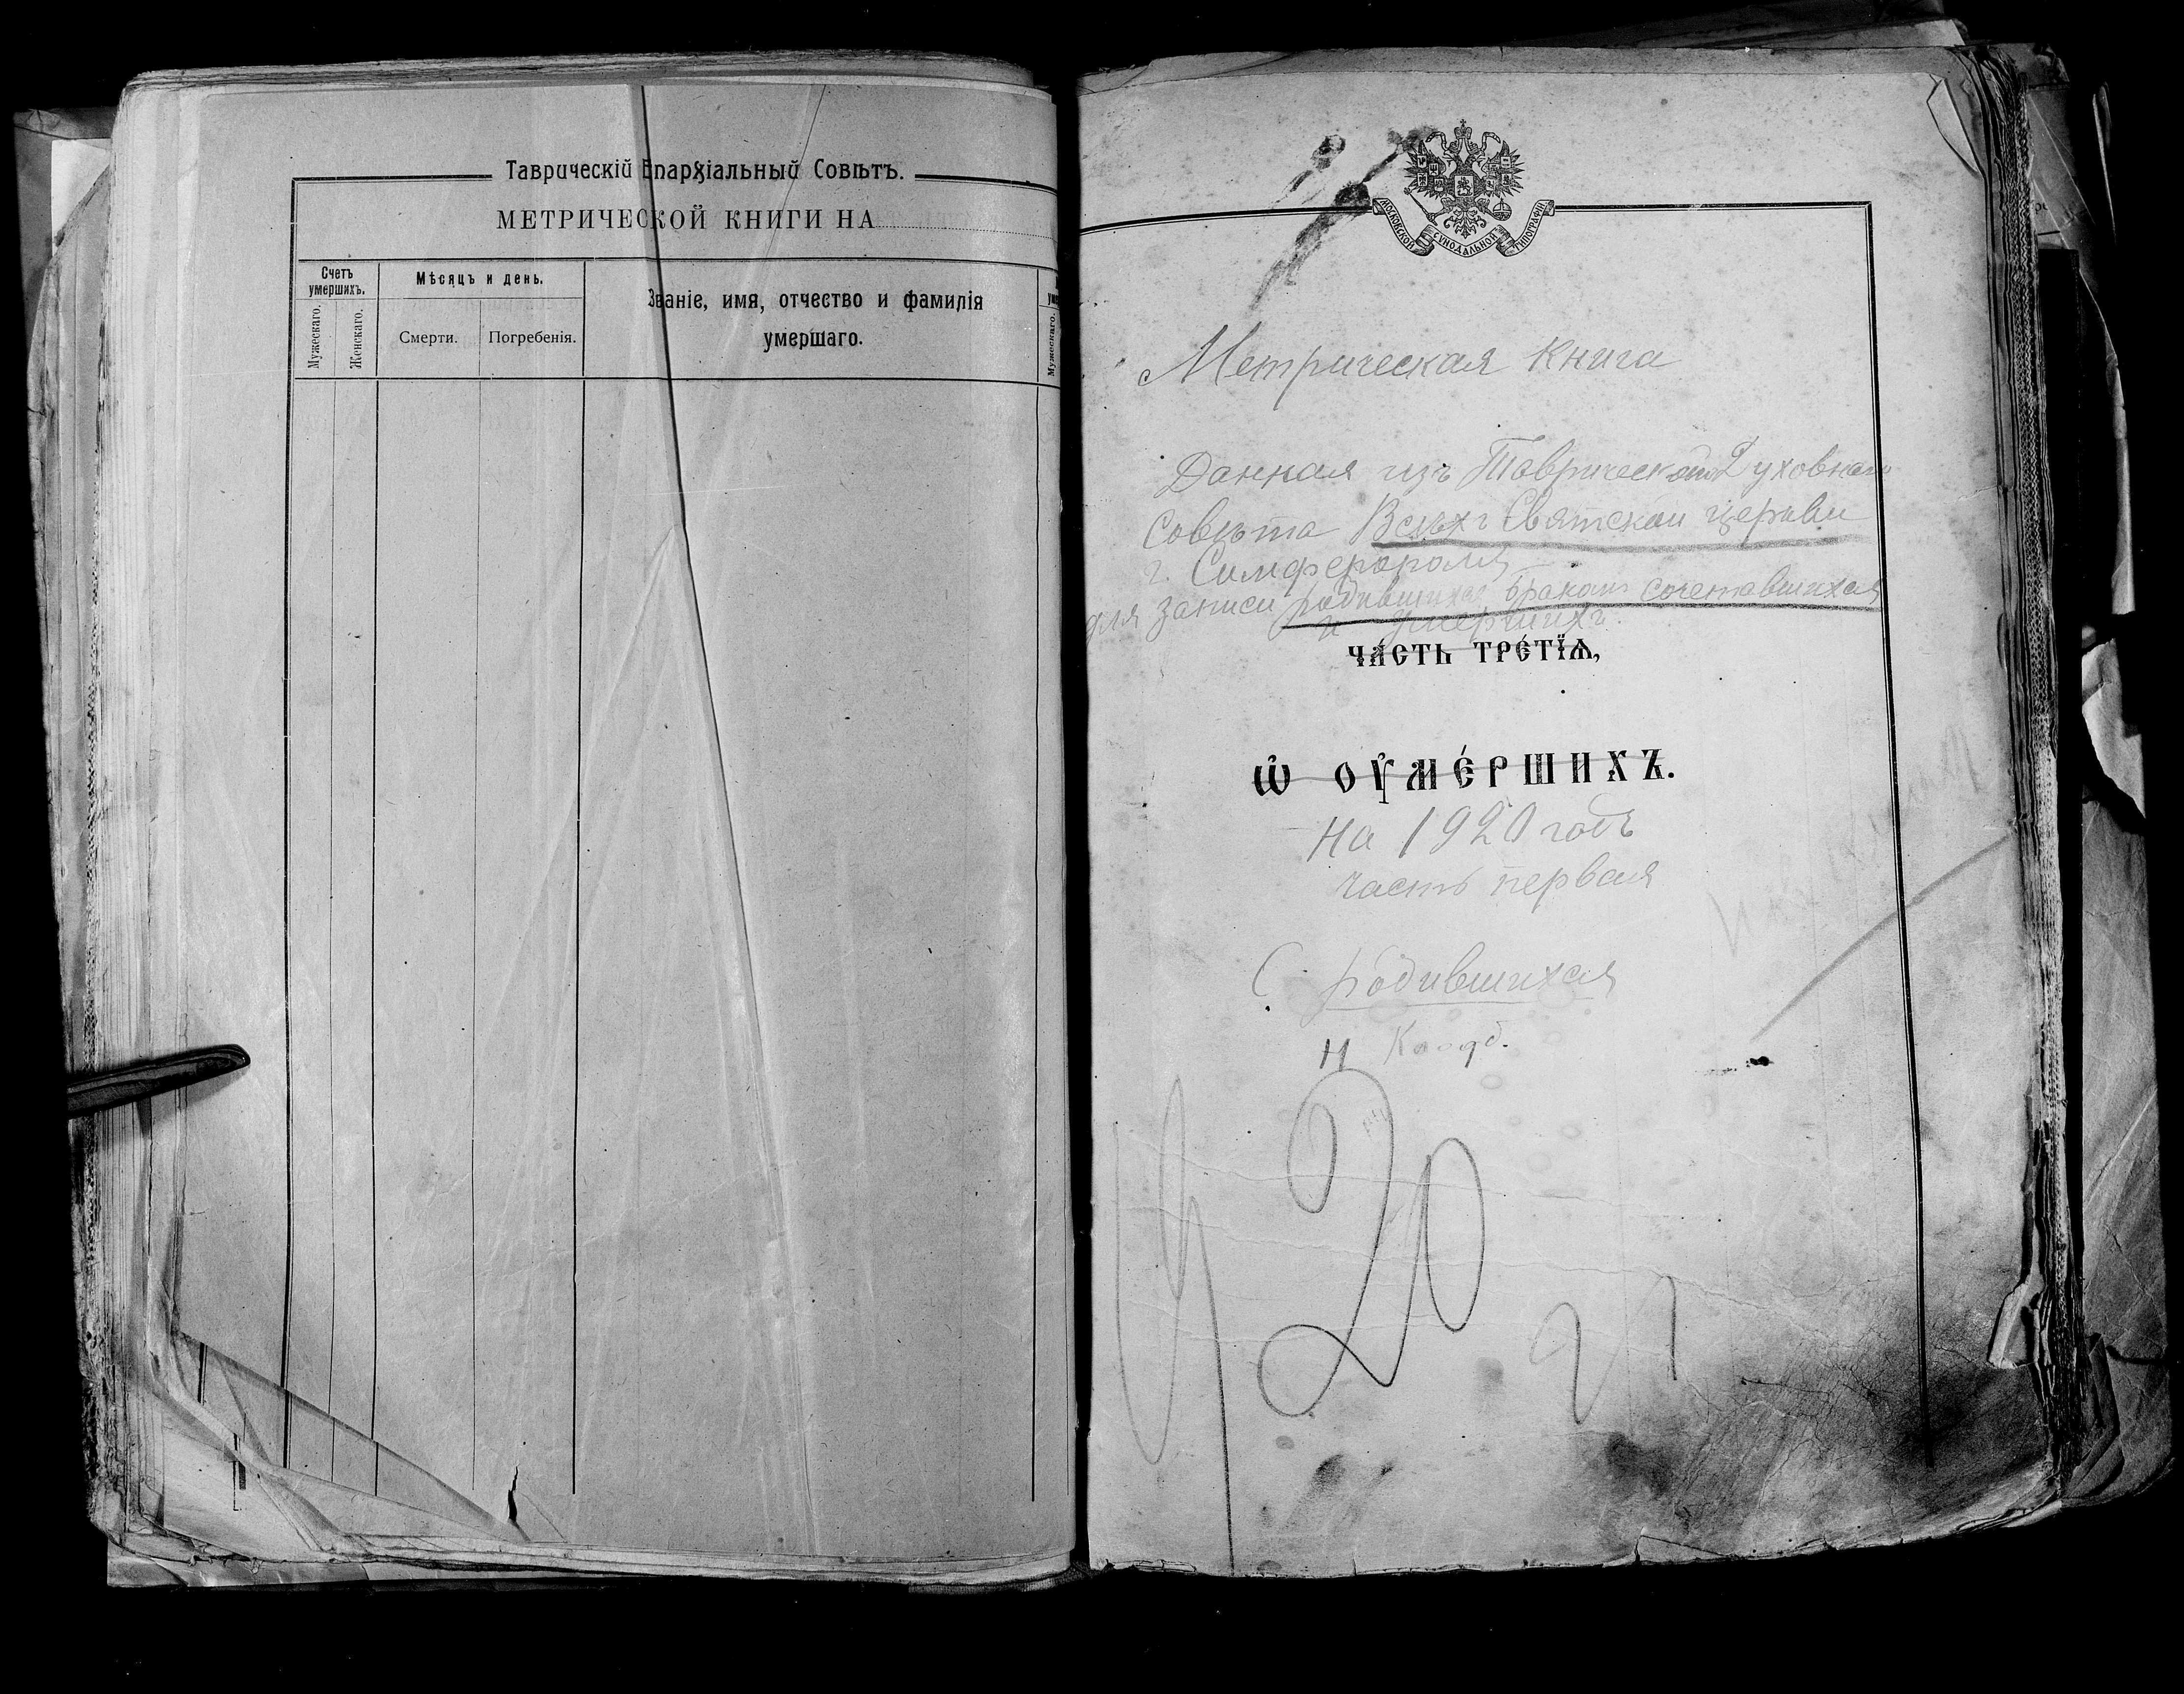 Таврическій Епархіальный Совѣтъ.
МЕТРИЧЕСКОЙ КНИГИ НА
Счетъ умершихъ.
Мужескаго.
Женскаго.
Мѣсяцъ и день.
Смерти.
Погребенія.
Званіе, имя, отчество и фамилія
умершаго.
Мужескаго.
МОСКОВСКОЙ СѴНОДАЛЬНОЙ ТИПОГРАФІИ
Метрическая книга
Данная изъ Таврическаго Духовнаго
Совѣта Всѣхъ-Святской церкви
г. Симферополя
для записи родившихся бракомъ сочетавшихся
и умершихъ
ЧА́СТЬ ТРЕ́ТЇѦ,
Ѡ҆ ОУ҆МЕ́РШИХЪ.
на 1920 годъ
часть первая
С родившихся
н
920
21